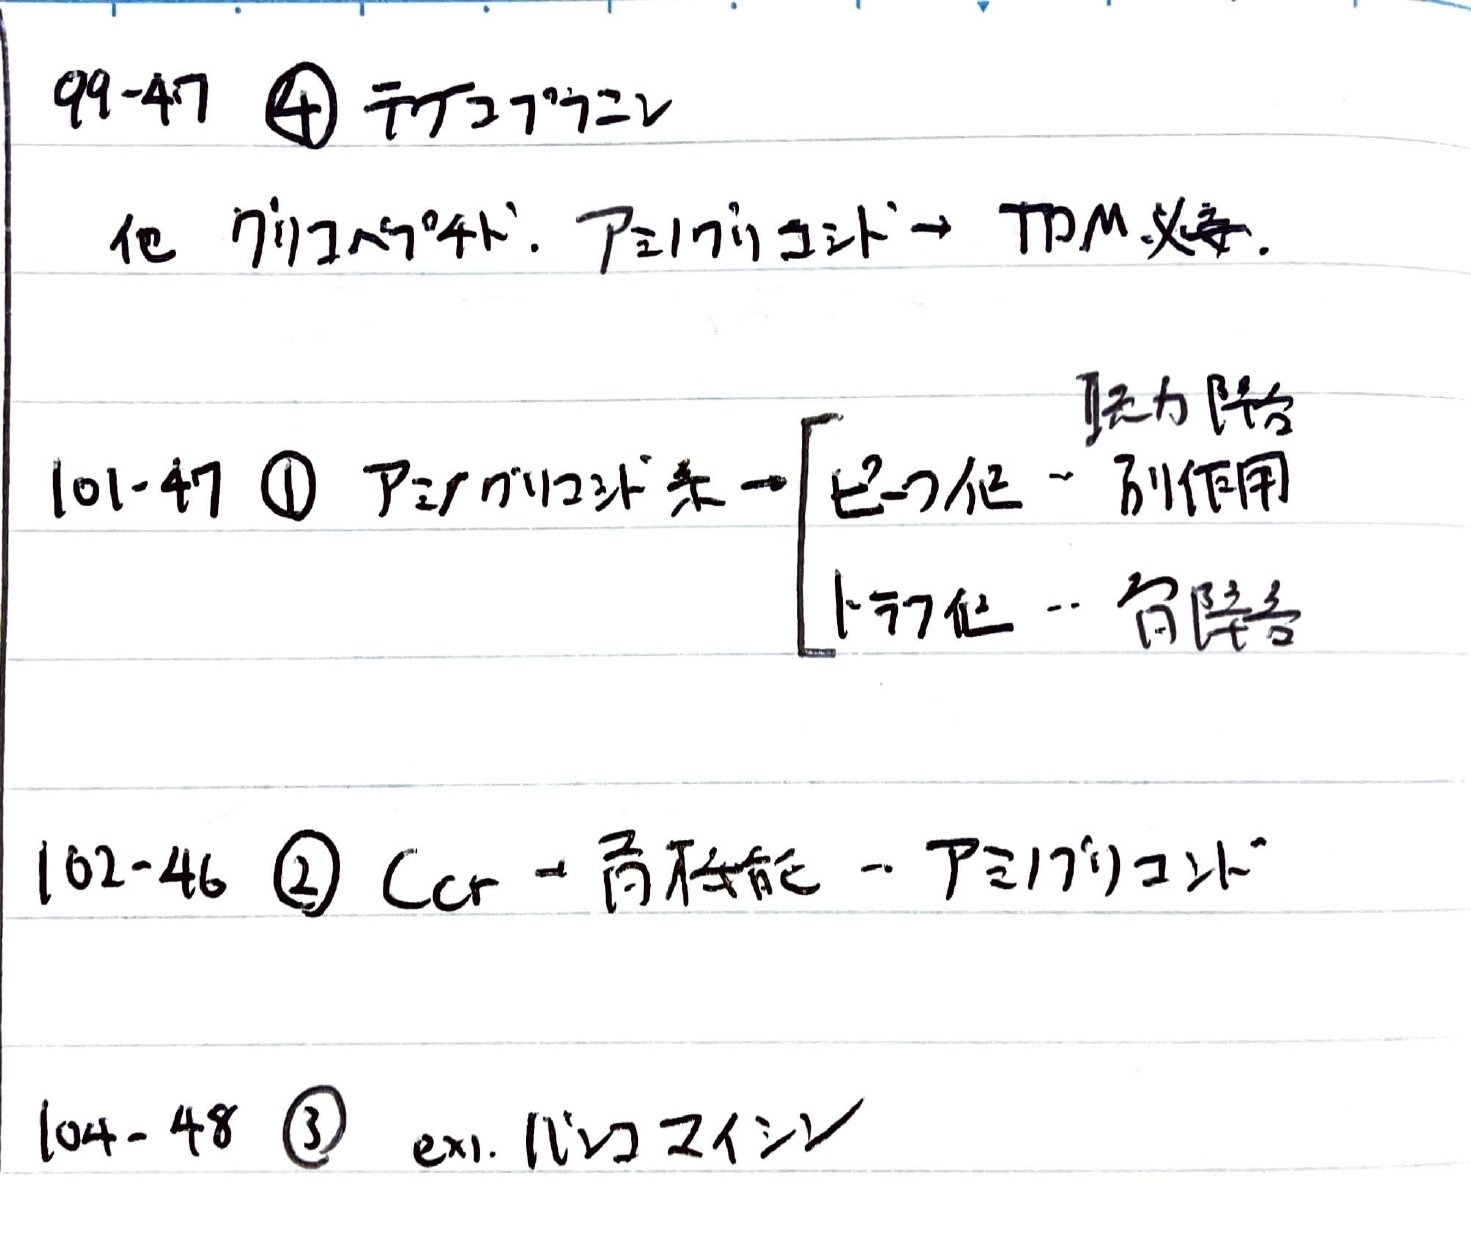 99-47 ④ テイコプラニン
他 グリコペプチド. アミノグリコシド → TDM必要.
聴力障害
101-47 ① アミノグリコシド系 → ピーク値 … 副作用
トラフ値 … 腎障害
102-46 ② Ccr → 腎機能 … アミノグリコシド
104-48 ③ ex). バンコマイシン